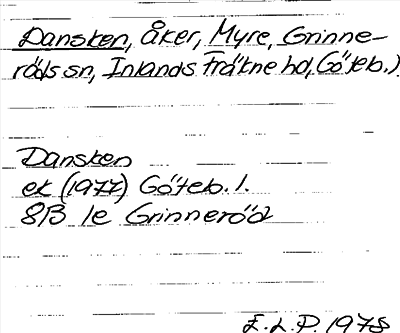 Dansken, Åker, Myre, Grinne-
röds sn, Inlands Fräkne hd, Göteb. l.
Dansken
ek (1977) Göteb. l.
8B 1e Grinneröd
E.L.P. 1978